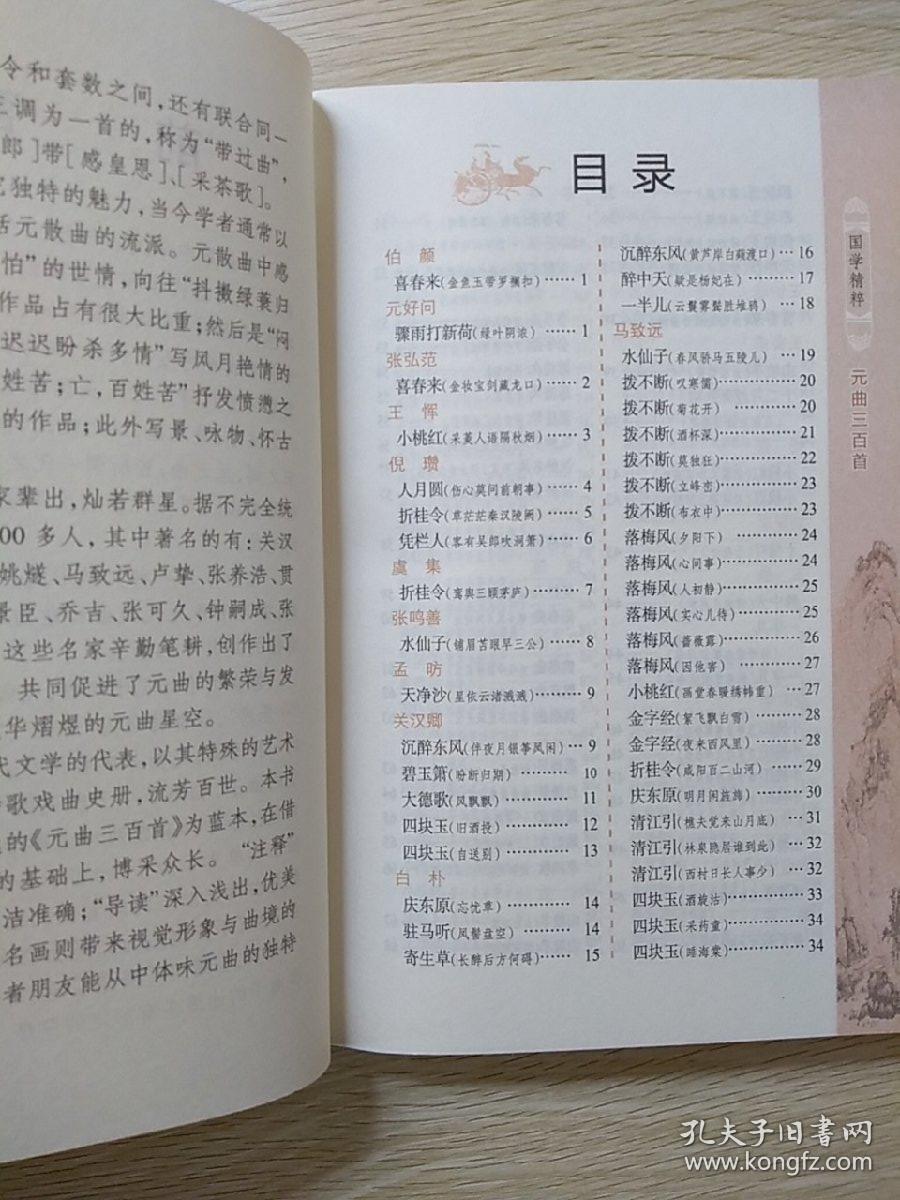 令和套数之间，还有联合同一
调为一首的，称为“带过曲”，
郎]带[感皇恩]、[采茶歌]。
独特的魅力，当今学者通常以
括元散曲的流派。元散曲中感
怕”的世情，向往“抖擞绿蓑归
作品占有很大比重；然后是“闷
迟迟盼杀多情”写风月艳情的
姓苦；亡，百姓苦”抒发愤懑之
的作品；此外写景、咏物、怀古
家辈出，灿若群星。据不完全统
00多人，其中著名的有：关汉
姚燧、马致远、卢挚、张养浩、贯
景臣、乔吉、张可久、钟嗣成、张
这些名家辛勤笔耕，创作出了
共同促进了元曲的繁荣与发
华熠煜的元曲星空。
代文学的代表，以其特殊的艺术
歌戏曲史册，流芳百世。本书
的《元曲三百首》为蓝本，在借
的基础上，博采众长。“注释”
洁准确；“导读”深入浅出，优美
名画则带来视觉形象与曲境的
者朋友能从中体味元曲的独特
目录
伯颜
喜春来(金鱼玉带罗襕扣)……1
元好问
骤雨打新荷(绿叶阴浓)……1
张弘范
喜春来(金妆宝剑藏龙口)……2
王恽
小桃红(采菱人语隔秋烟)……3
倪瓒
人月圆(伤心莫问前朝事)……4
折桂令(草茫茫秦汉陵阙)……5
凭栏人(客有吴郎吹洞箫)……6
虞集
折桂令(鸾舆三顾茅庐)……7
张鸣善
水仙子(铺眉苫眼早三公)……8
孟昉
天净沙(星依云渚溅溅)……9
关汉卿
沉醉东风(伴夜月银筝凤闲)…9
碧玉箫(盼断归期)……10
大德歌(风飘飘)……11
四块玉(旧酒投)……12
四块玉(自送别)……13
白朴
庆东原(忘忧草)……14
驻马听(凤髻盘空)……14
寄生草(长醉后方何碍)……15
沉醉东风(黄芦岸白蘋渡口)…16
醉中天(疑是杨妃在)……17
一半儿(云鬟雾鬓胜堆鸦)…18
马致远
水仙子(春风骄马五陵儿)…19
拨不断(叹寒儒)……20
拨不断(菊花开)……20
拨不断(酒杯深)……21
拨不断(莫独狂)……22
拨不断(立峰峦)……23
拨不断(布衣中)……23
落梅风(夕阳下)……24
落梅风(心间事)……24
落梅风(人初静)……25
落梅风(实心儿待)……25
落梅风(蔷薇露)……26
落梅风(因他害)……27
小桃红(画堂春暖绣帏重)…27
金字经(絮飞飘白雪)……28
金字经(夜来西风里)……28
折桂令(咸阳百二山河)……29
庆东原(明月闲旌旆)……30
清江引(樵夫觉来山月底)…31
清江引(林泉隐居谁到此)…32
清江引(西村日长人事少)…32
四块玉(酒旋沽)……33
四块玉(采药童)……34
四块玉(睡海棠)……34
国学精粹
元曲三百首
孔夫子旧书网
www.kongfz.com